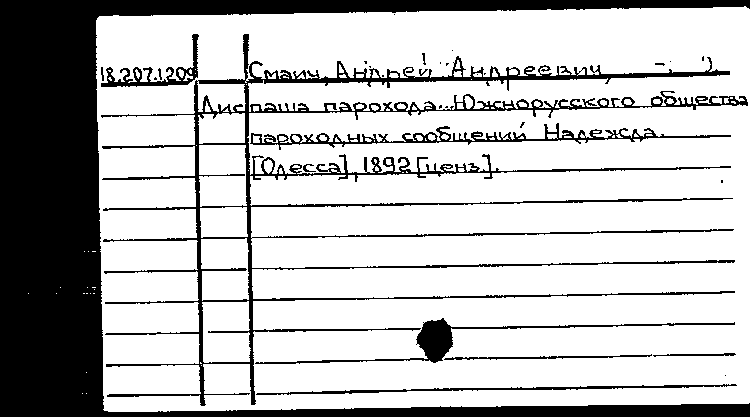 18.207.1.209 Смаич, Андрей Андреевич,
Диспаша парохода... Южнорусского общества
пароходных сообщений Надежда.
[Одесса], 1892 [ценз.].